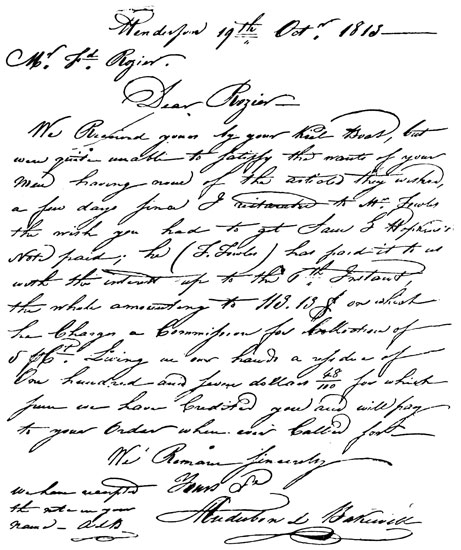 Henderson 19th Octr. 1813
Mr. Fd. Rozier.
Dear Rozier
We Received yours by your Keel Boat, but
were quite unable to satisfy the wants of your
Men having none of the articles they wished,
a few days since I to Mr. Fowles
the wish you had to get Saml Hopkins's
Note paid; he (J. Fowles) has paid it to us
with the interest up to the 6th Instant,
the whole amounting to 113.13 $ on which
he Charges a Commission for Collection of
5 PCt. Living in our hands a residue of
One hundred and seven dollars 48/100 for which
sum we have Credited you and will pay
to your Order when ever Called for
We Remain Sincerely
Yours
we have receipted
the note in your
name - A&B
Audubon & Bakewell